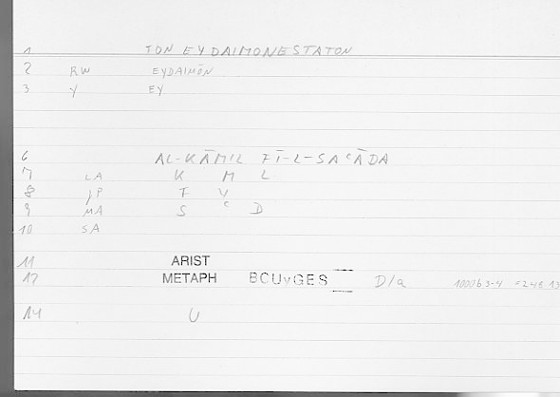 1 TON EYDAIMONESTATON
2 RW EYDAIMŌN
3 Y EY
6 AL-KĀMIL FĪ-L-SAʿĀDA
7 LA K M L
8 JP F Y
9 MA S ʿ D
10 SA
11 ARIST
12 METAPH BCUVGES D/a 1000b3-4 =248,13
14 U